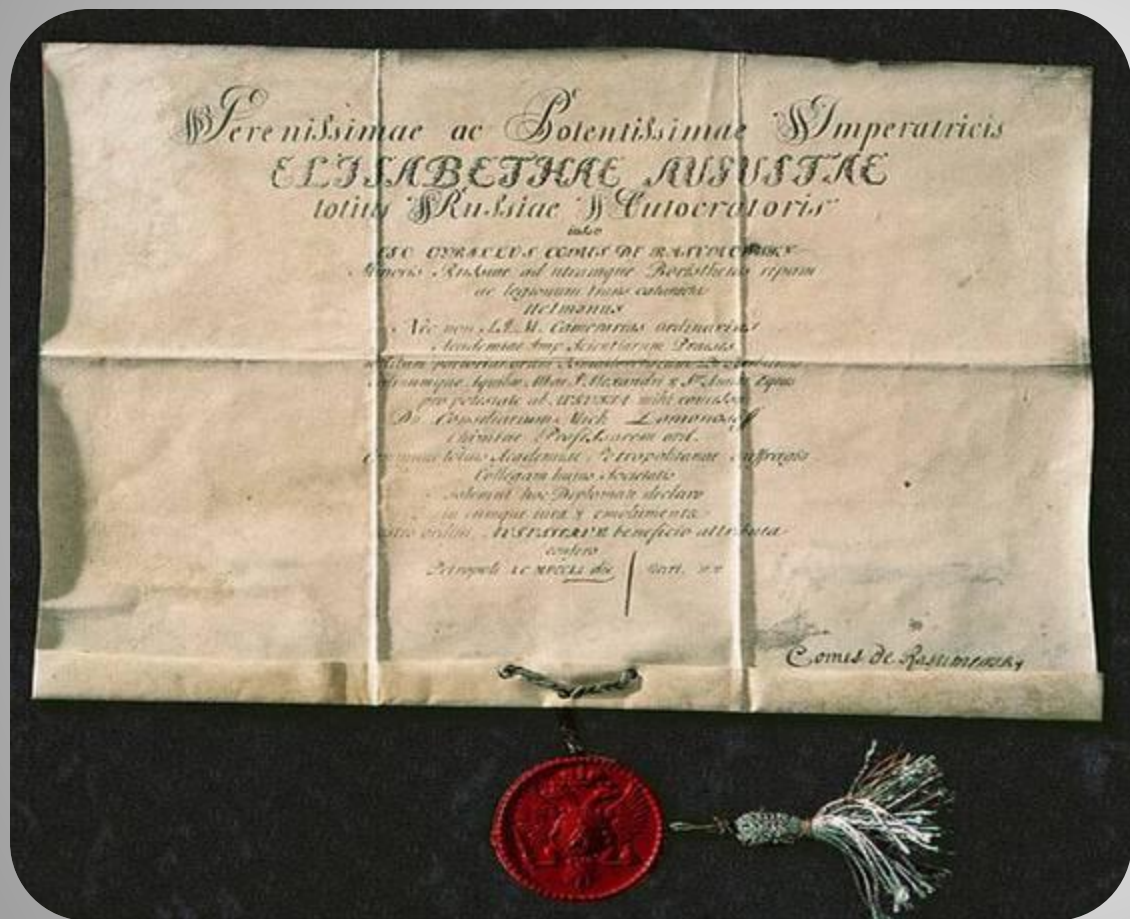 Serenissimae ac Potentissimae Imperatricis
ELISABETHAE AUGUSTAE
totius Russiae Autocratoris
iussu
EGO CYRILLUS COMES DE RASUMOWSKY
Minoris Russiae ad utramque Boristhenis ripam
ac legionum trans
Hetmanus
Nec non S.I.M. Camerarius ordinarius
Academiae Imp Scientiarum Praeses
Aquilae Albae S. Alexandri & Eques
pro potestate ab AUGUSTA mihi concessa
Dn Consiliarium Mich Lomonosoff
Chimiae Professorem ord.
totius Academiae Petropolitanae suffragio
Collegam huius Societatis
solemni hoc Diplomate declaro
iura & emolumenta
ordini AUGUSTAE beneficio attributa
confero
Petropoli die
Comes de Rasumowsky